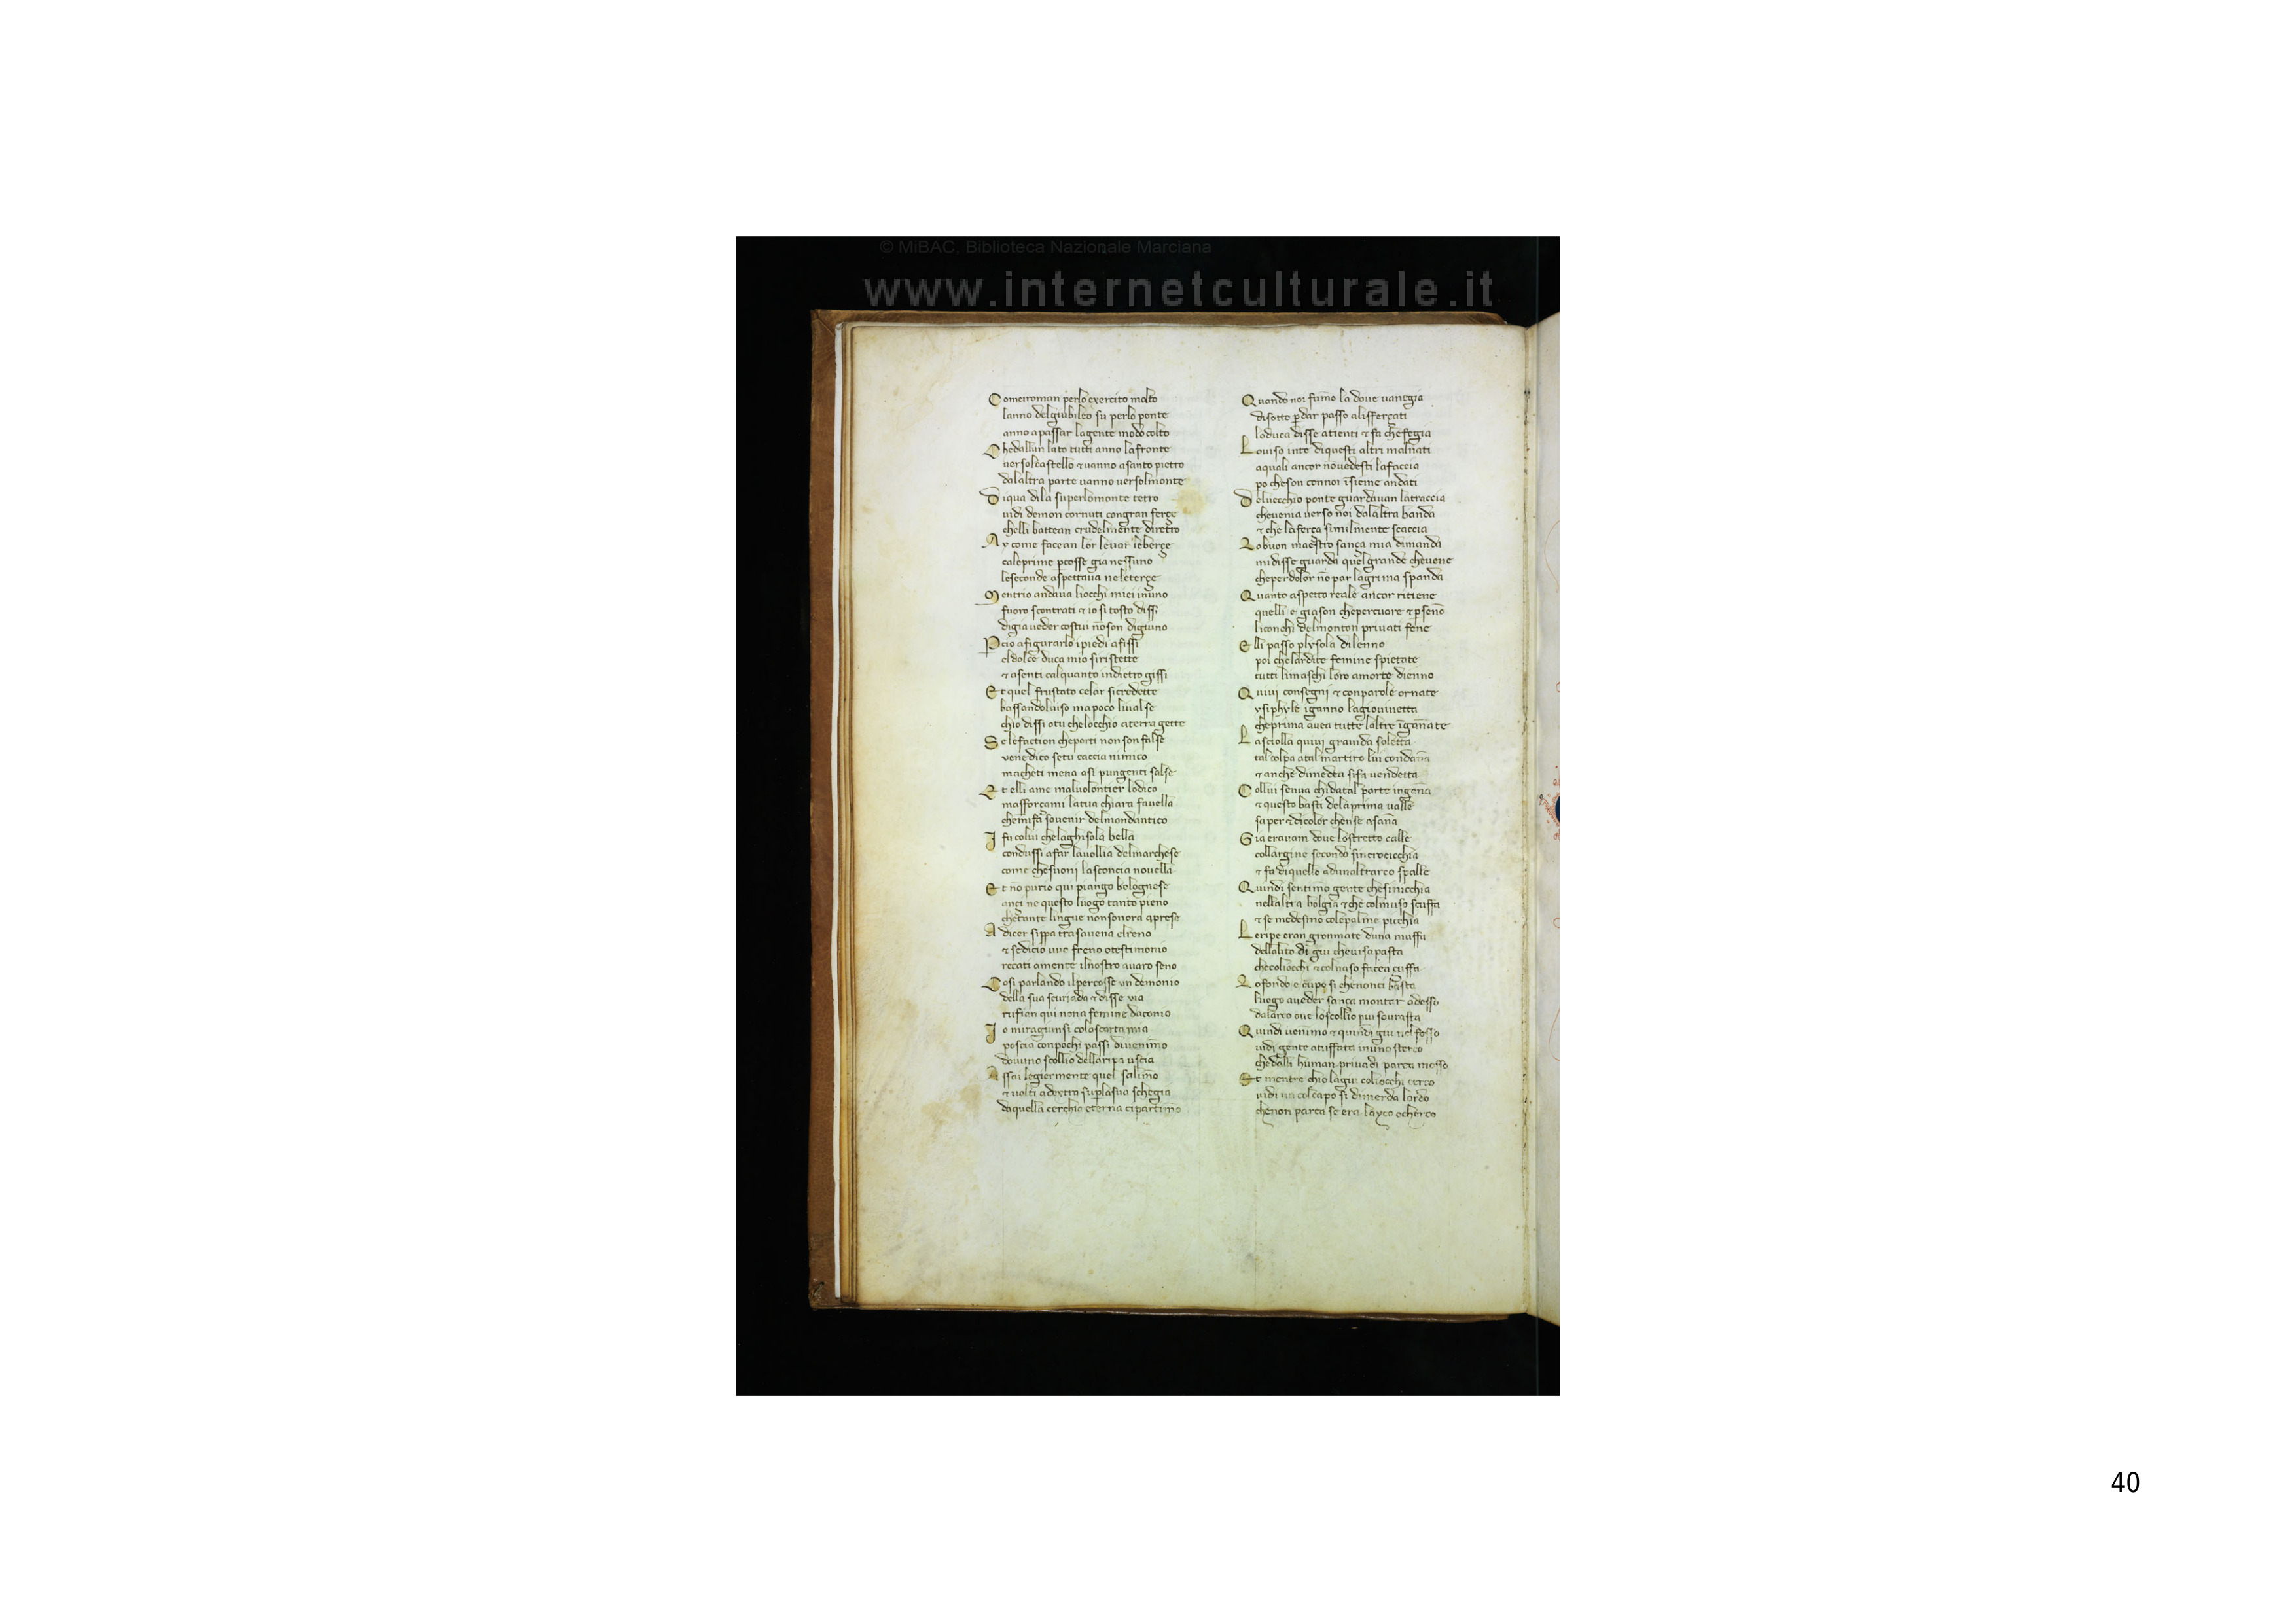 © MiBAC, Biblioteca Nazionale Marciana
www.internetculturale.it
Comeiroman perlo exercito molto
lanno delgiubileo su perlo ponte
anno apassar lagente modo colto
Chedallun lato tutti anno lafronte
versolcastello ⁊ vanno asanto pietro
dalaltra parte vanno versolmonte
Diqua dila superlomonte tetro
vidi demon cornuti congran ferçe
chelli battean crudelmente diretro
Ay come facean lor levar leberçe
caleprime pcosse gia nessuno
leseconde aspettava neleterçe
Mentrio andava liocchi miei inuno
fuoro scontrati ⁊ io si tosto dissi
digia veder costui nōson digiuno
Pcio afigurarlo ipiedi afissi
eldolce duca mio siristette
⁊ asenti calquanto indietro gissi
Et quel frustato celar sicredette
bassandolviso mapoco livalse
chio dissi otu chelocchio aterra gette
Se lefaction cheporti non son false
venedico setu caccia nimico
macheti mena asi pungenti salse
Et elli ame malvolontier lodico
massforçami latua chiara favella
chemifa sovenir delmondantico
I fu colui chelaghisola bella
condussi afar lavollia delmarchese
come chesuoni lasconcia novella
Et nō purio qui piango bolognese
ançi ne questo luogo tanto pieno
chetante lingue nonsonora aprese
A dicer sippa trasavena elreno
⁊ sedicio vuo freno otestimonio
recati amente ilnostro avaro seno
Cosi parlando ilpercosse un demonio
della sua scuriada ⁊ disse via
rufian qui nona femine daconio
Io miragiunsi coloscorta mia
poscia conpochi passi divenimo
dovuno scollio dellaripa uscia
Assai legiermente quel salimo
⁊ volti adextra suplasua schegia
daquella cerchie eterna cipartimo
Quando noi fumo la dove vanegia
disotto pdar passo alifferçati
loduca disse atienti ⁊ fa chefegia
Loviso inte diquesti altri malnati
aquali ancor nōvedesti lafaccia
po cheson connoi īsieme andati
Delvecchio ponte guardavan latraccia
chevenia verso noi dalaltra banda
⁊ che laferça similmente scaccia
Lobuon maestro sança mia dimanda
midisse guarda quelgrande chevene
cheperdolor nō par lagrima spanda
Quanto aspetto reale ancor ritiene
quelli e giason chepercuore ⁊ psenō
liconchi delmonton privati fene
Elli passo plysola dilenno
poi chelardite femine spietate
tutti limaschi loro amorte dienno
Quivi consegni ⁊ conparole ornate
ysiphyle iganno lagiovinetta
cheprima avea tutte laltre īgānate
Lasciolla quivi gravida soletta
tal colpa atal martiro lui condāna
⁊ anche dimedea sifa vendetta
Collui senva chidatal parte ingāna
⁊ questo basti delaprima valle
saper ⁊ dicolor chense asāna
Gia eravam dove lostretto calle
collargine secondo sincrocicchia
⁊ fa diquello adunaltrarco spalle
Quindi sentimo gente chesinicchia
nellaltra bolgia ⁊ che colmuso scuffa
⁊ se medesmo colepalme picchia
Leripe eran grommate duna muffa
dellalito di giu chevisapasta
checoliocchi ⁊ colnaso facea çuffa
Lofondo e cupo si chenonci basta
luogo aveder sança montar adesso
dalarco ove loscollio piu sovrasta
Quindi venimo ⁊ quindi giu nel fosso
vidi gente atuffata inuno sterco
chedalli human privadi parea mosso
Et mentre chio lagiu coliocchi cerco
vidi un colcapo si dimerda lordo
chenon parea se era layco ocherco
40